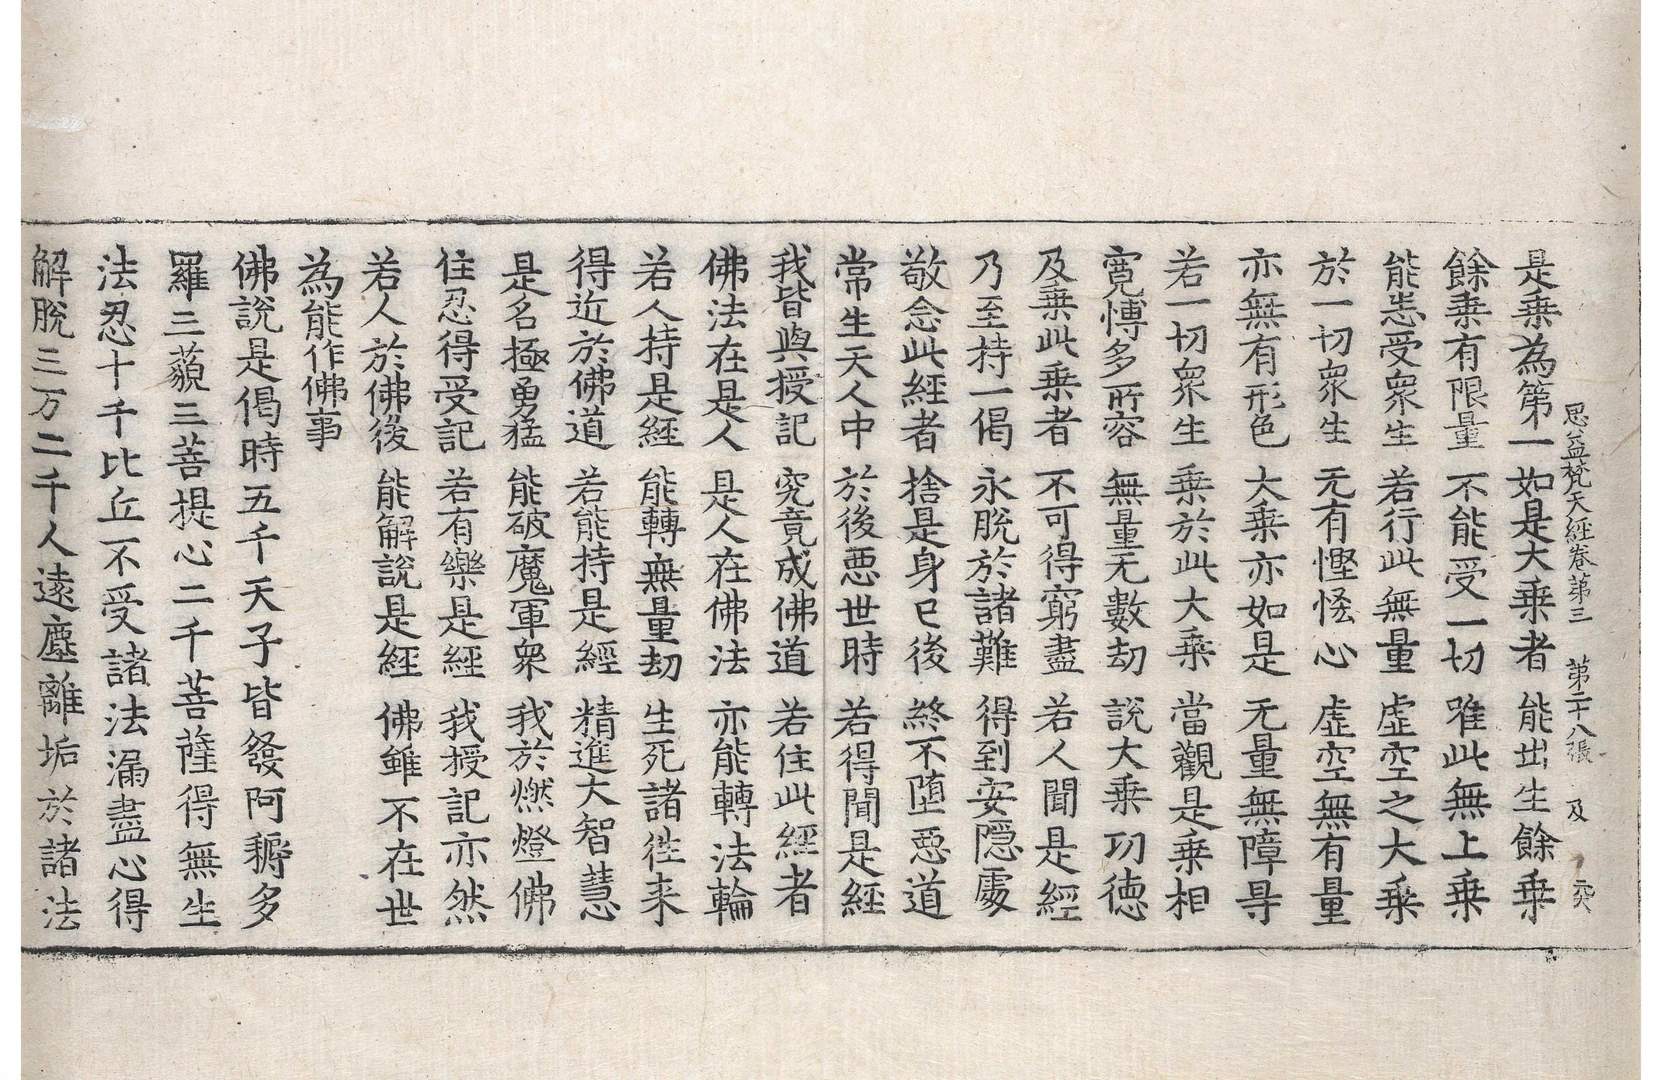 思益梵天經卷第三 第二十八張 及
是乗為第一 如是大乗者 能出生餘乗
餘乗有限量 不能受一切 唯此無上乗
能悉受衆生 若行此無量 虛空之大乗
於一切衆生 无有慳悋心 虛空無有量
亦無有形色 大乗亦如是 无量無障㝵
若一切衆生 乗於此大乗 當觀是乗相
寛博多所容 無量无數劫 說大乗功徳
及乗此乗者 不可得窮盡 若人聞是經
乃至持一偈 永脫於諸難 得到安隱處
敬念此經者 捨是身已後 終不堕惡道
常生天人中 於後惡世時 若得聞是經
我皆與授記 究竟成佛道 若住此經者
佛法在是人 是人在佛法 亦能轉法輪
若人持是經 能轉無量劫 生死諸徃来
得近於佛道 若能持是經 精進大智慧
是名極勇猛 能破魔軍衆 我於燃燈佛
住忍得受記 若有樂是經 我授記亦然
若人於佛後 能解說是經 佛雖不在世
為能作佛事
佛說是偈時五千天子皆發阿耨多
羅三藐三菩提心二千菩薩得無生
法忍十千比丘不受諸法漏盡心得
解脫三万二千人遠塵離垢於諸法